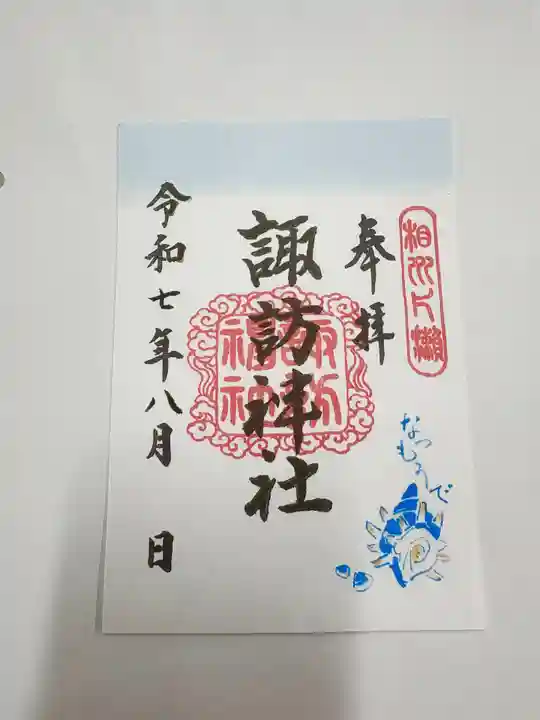 相州片瀬
奉拝
諏訪神社
令和七年八月 日
なつもうで